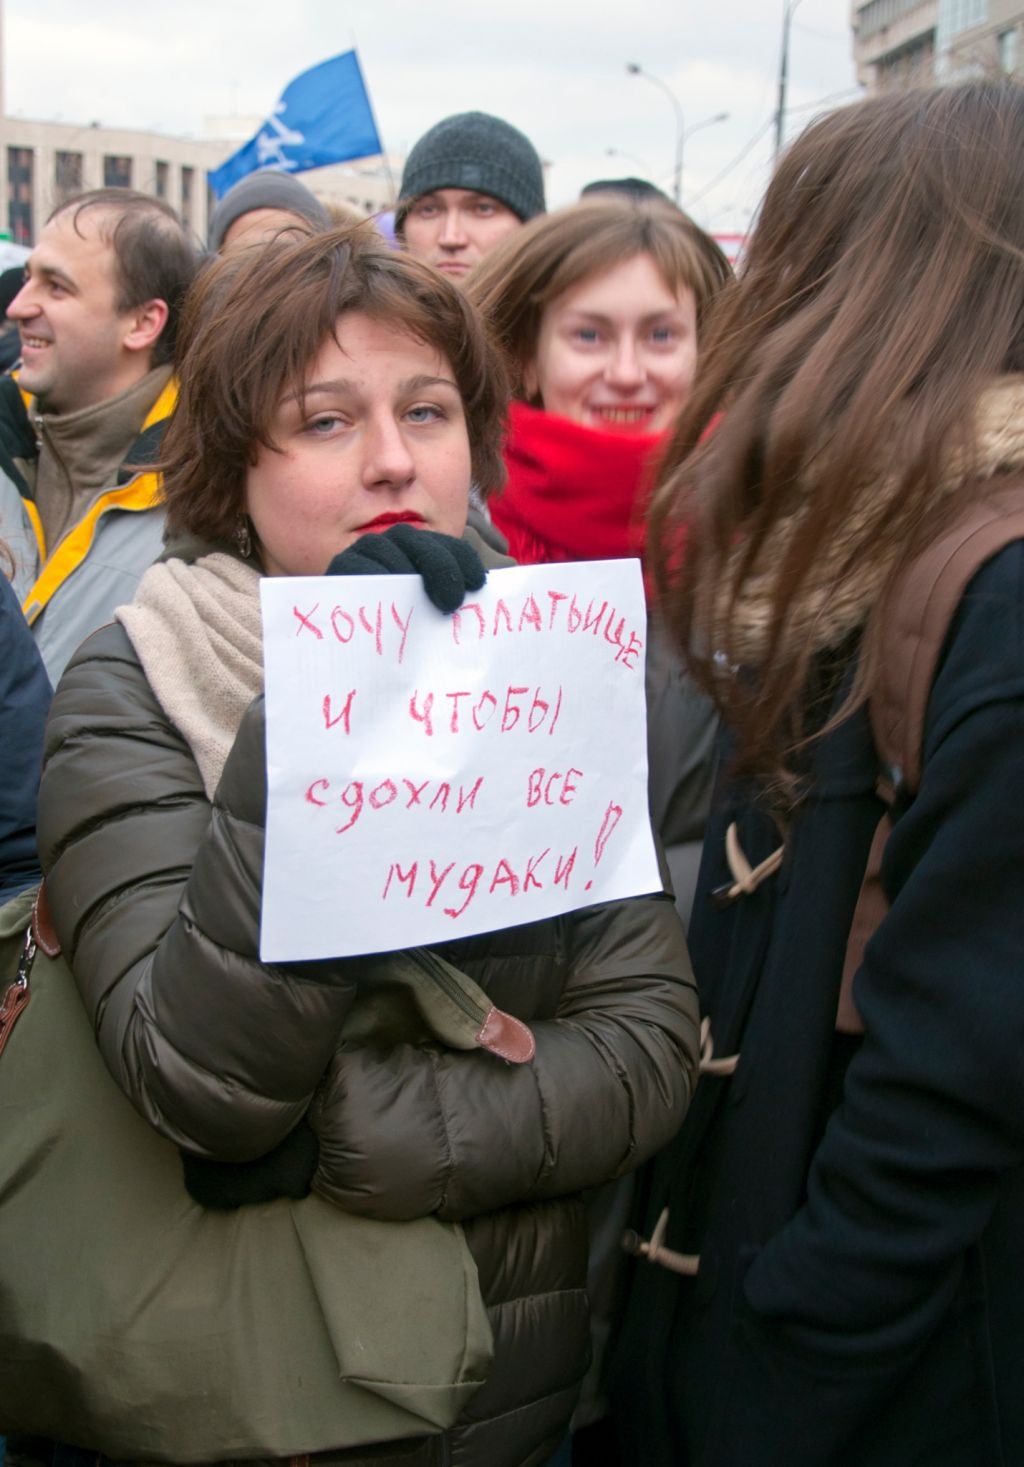 ХОЧУ ПЛАТЬИЦЕ
И ЧТОБЫ
сдохли ВСЕ
МУдАКИ!